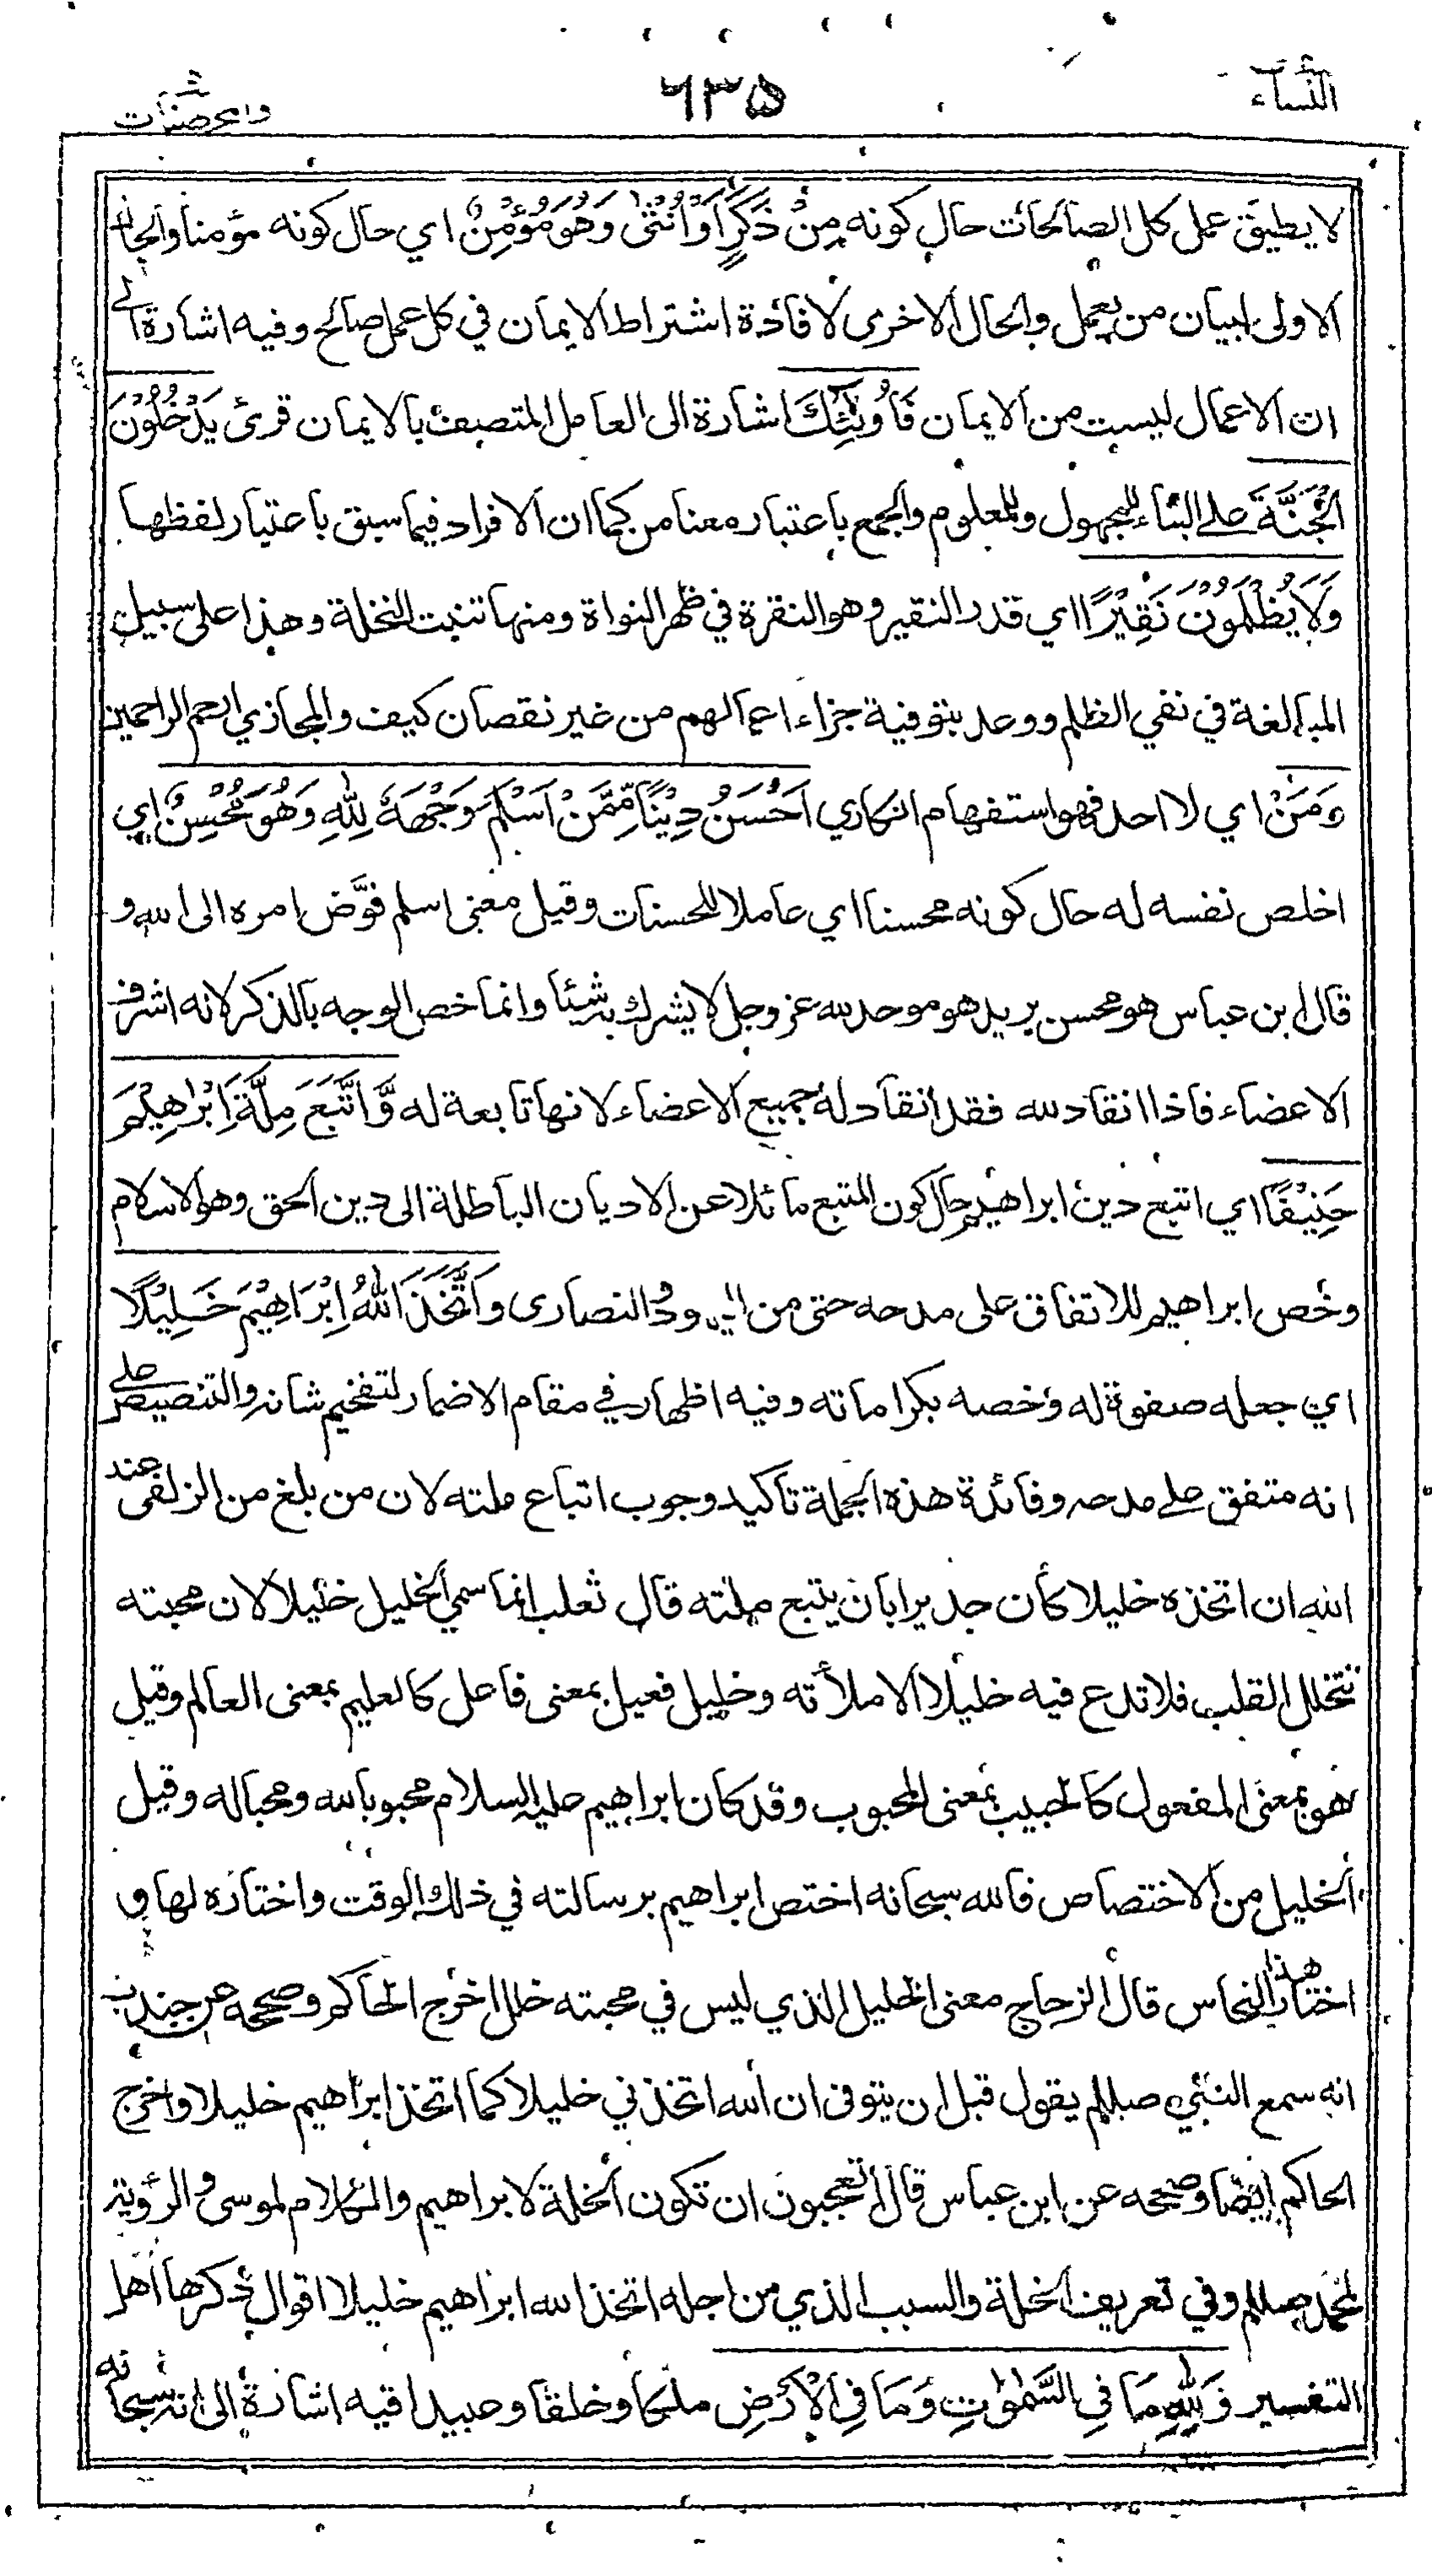 النساء
٦٣٥
والمحصنات
لا يطيق عمل كل الصالحات حال كونه مِنْ ذَكَرٍ اَوْ اُنْثٰى وَهُوَ مُؤْمِنٌ اي حال كونه مؤمنا والحال
الاولى لبيان من يعمل والحال الاخرى لافادة اشتراط الايمان في كل عمل صالح وفيه اشارة الى
ان الاعمال ليست من الايمان فَاُولٰٓئِكَ اشارة الى العامل المتصف بالايمان قرئ يَدْخُلُوْنَ
الْجَنَّةَ على البناء للمجهول وللمعلوم والجمع باعتبار معنا من كما ان الافراد فيما سبق باعتبار لفظها
وَلَا يُظْلَمُوْنَ نَقِيْرًا اي قدر النقير وهو النقرة في ظهر النواة ومنها تنبت النخلة وهذا على سبيل
المبالغة في نفي الظلم ووعد بتوفية جزاء اعمالهم من غير نقصان كيف والمجازي ارحم الراحمين
وَمَنْ اي لا احد فهو استفهام انكاري اَحْسَنُ دِيْنًا مِّمَّنْ اَسْلَمَ وَجْهَهٗ لِلّٰهِ وَهُوَ مُحْسِنٌ اي
اخلص نفسه له حال كونه محسنا اي عاملا للحسنات وقيل معنى اسلم فوَّض امره الى الله و
قال ابن عباس هو محسن يريد هو موحد لله عز وجل لا يشرك به شيئا وانما خص الوجه بالذكر لانه اشرف
الاعضاء فاذا انقاد لله فقد انقاد له جميع الاعضاء لانها تابعة له وَّاتَّبَعَ مِلَّةَ اِبْرَاهِيْمَ
حَنِيْفًا اي اتبع دين ابراهيم حال كون المتبع مائلا عن الاديان الباطلة الى دين الحق وهو الاسلام
وخص ابراهيم للاتفاق على مدحه حتى من اليهود والنصارى وَاتَّخَذَ اللّٰهُ اِبْرَاهِيْمَ خَلِيْلًا
اي جعله صفوة له وخصه بكراماته وفيه اظهار في مقام الاضمار لتفخيم شانه والتنصيص على
انه متفق على مدحه وفائدة هذه الجملة تاكيد وجوب اتباع ملته لان من بلغ من الزلفى عند
الله ان اتخذه خليلا كان جديرا بان يتبع ملته قال ثعلب انما سمي الخليل خليلا لان محبته
تتخلل القلب فلا تدع فيه خليلا الا ملأته وخليل فعيل بمعنى فاعل كالعليم بمعنى العالم وقيل
هو بمعنى المفعول كالحبيب بمعنى المحبوب وقد كان ابراهيم عليه السلام محبوبا لله ومحبا له وقيل
الخليل من الاختصاص فالله سبحانه اختص ابراهيم برسالته في ذلك الوقت واختاره لها و
اختار هذا النحاس قال الزجاج معنى الخليل الذي ليس في محبته خلل اخرج الحاكم وصححه عن جندب
انه سمع النبي صللم يقول قبل ان يتوفى ان الله اتخذني خليلا كما اتخذ ابراهيم خليلا واخرج
الحاكم ايضا وصححه عن ابن عباس قال اتعجبون ان تكون الخلة لابراهيم والكلام لموسى والرؤية
لمحمد صللم وفي تعريف الخلة والسبب الذي من اجله اتخذ الله ابراهيم خليلا اقوال ذكرها اهل
التفسير وَلِلّٰهِ مَا فِي السَّمٰوٰتِ وَمَا فِي الْاَرْضِ ملكا وخلقا وعبيدا فيه اشارة الى انه سبحانه